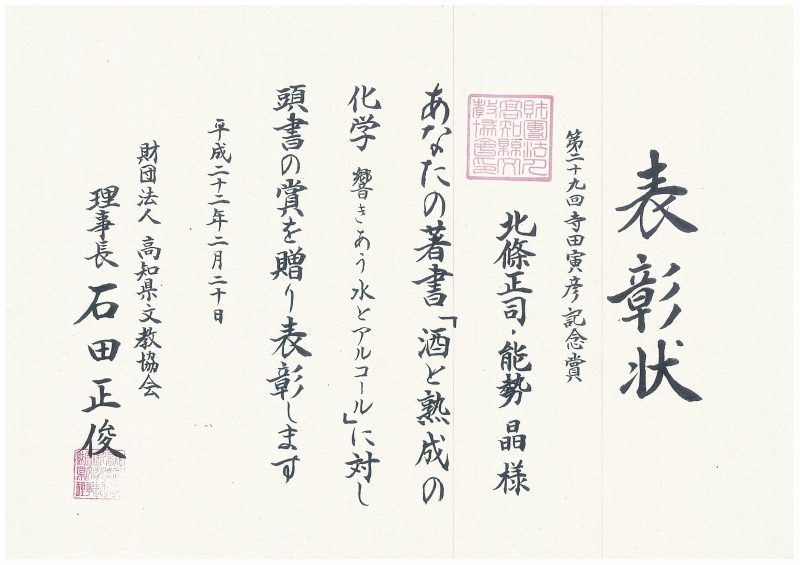 表彰状
第二十九回寺田寅彦記念賞
北條正司・能勢 晶 様
あなたの著書「酒と熟成の
化学 響きあう水とアルコール」に対し
頭書の賞を贈り表彰します
平成二十二年二月二十日
財団法人 高知県文教協会
理事長 石田正俊
財団法人高知縣文教協會印